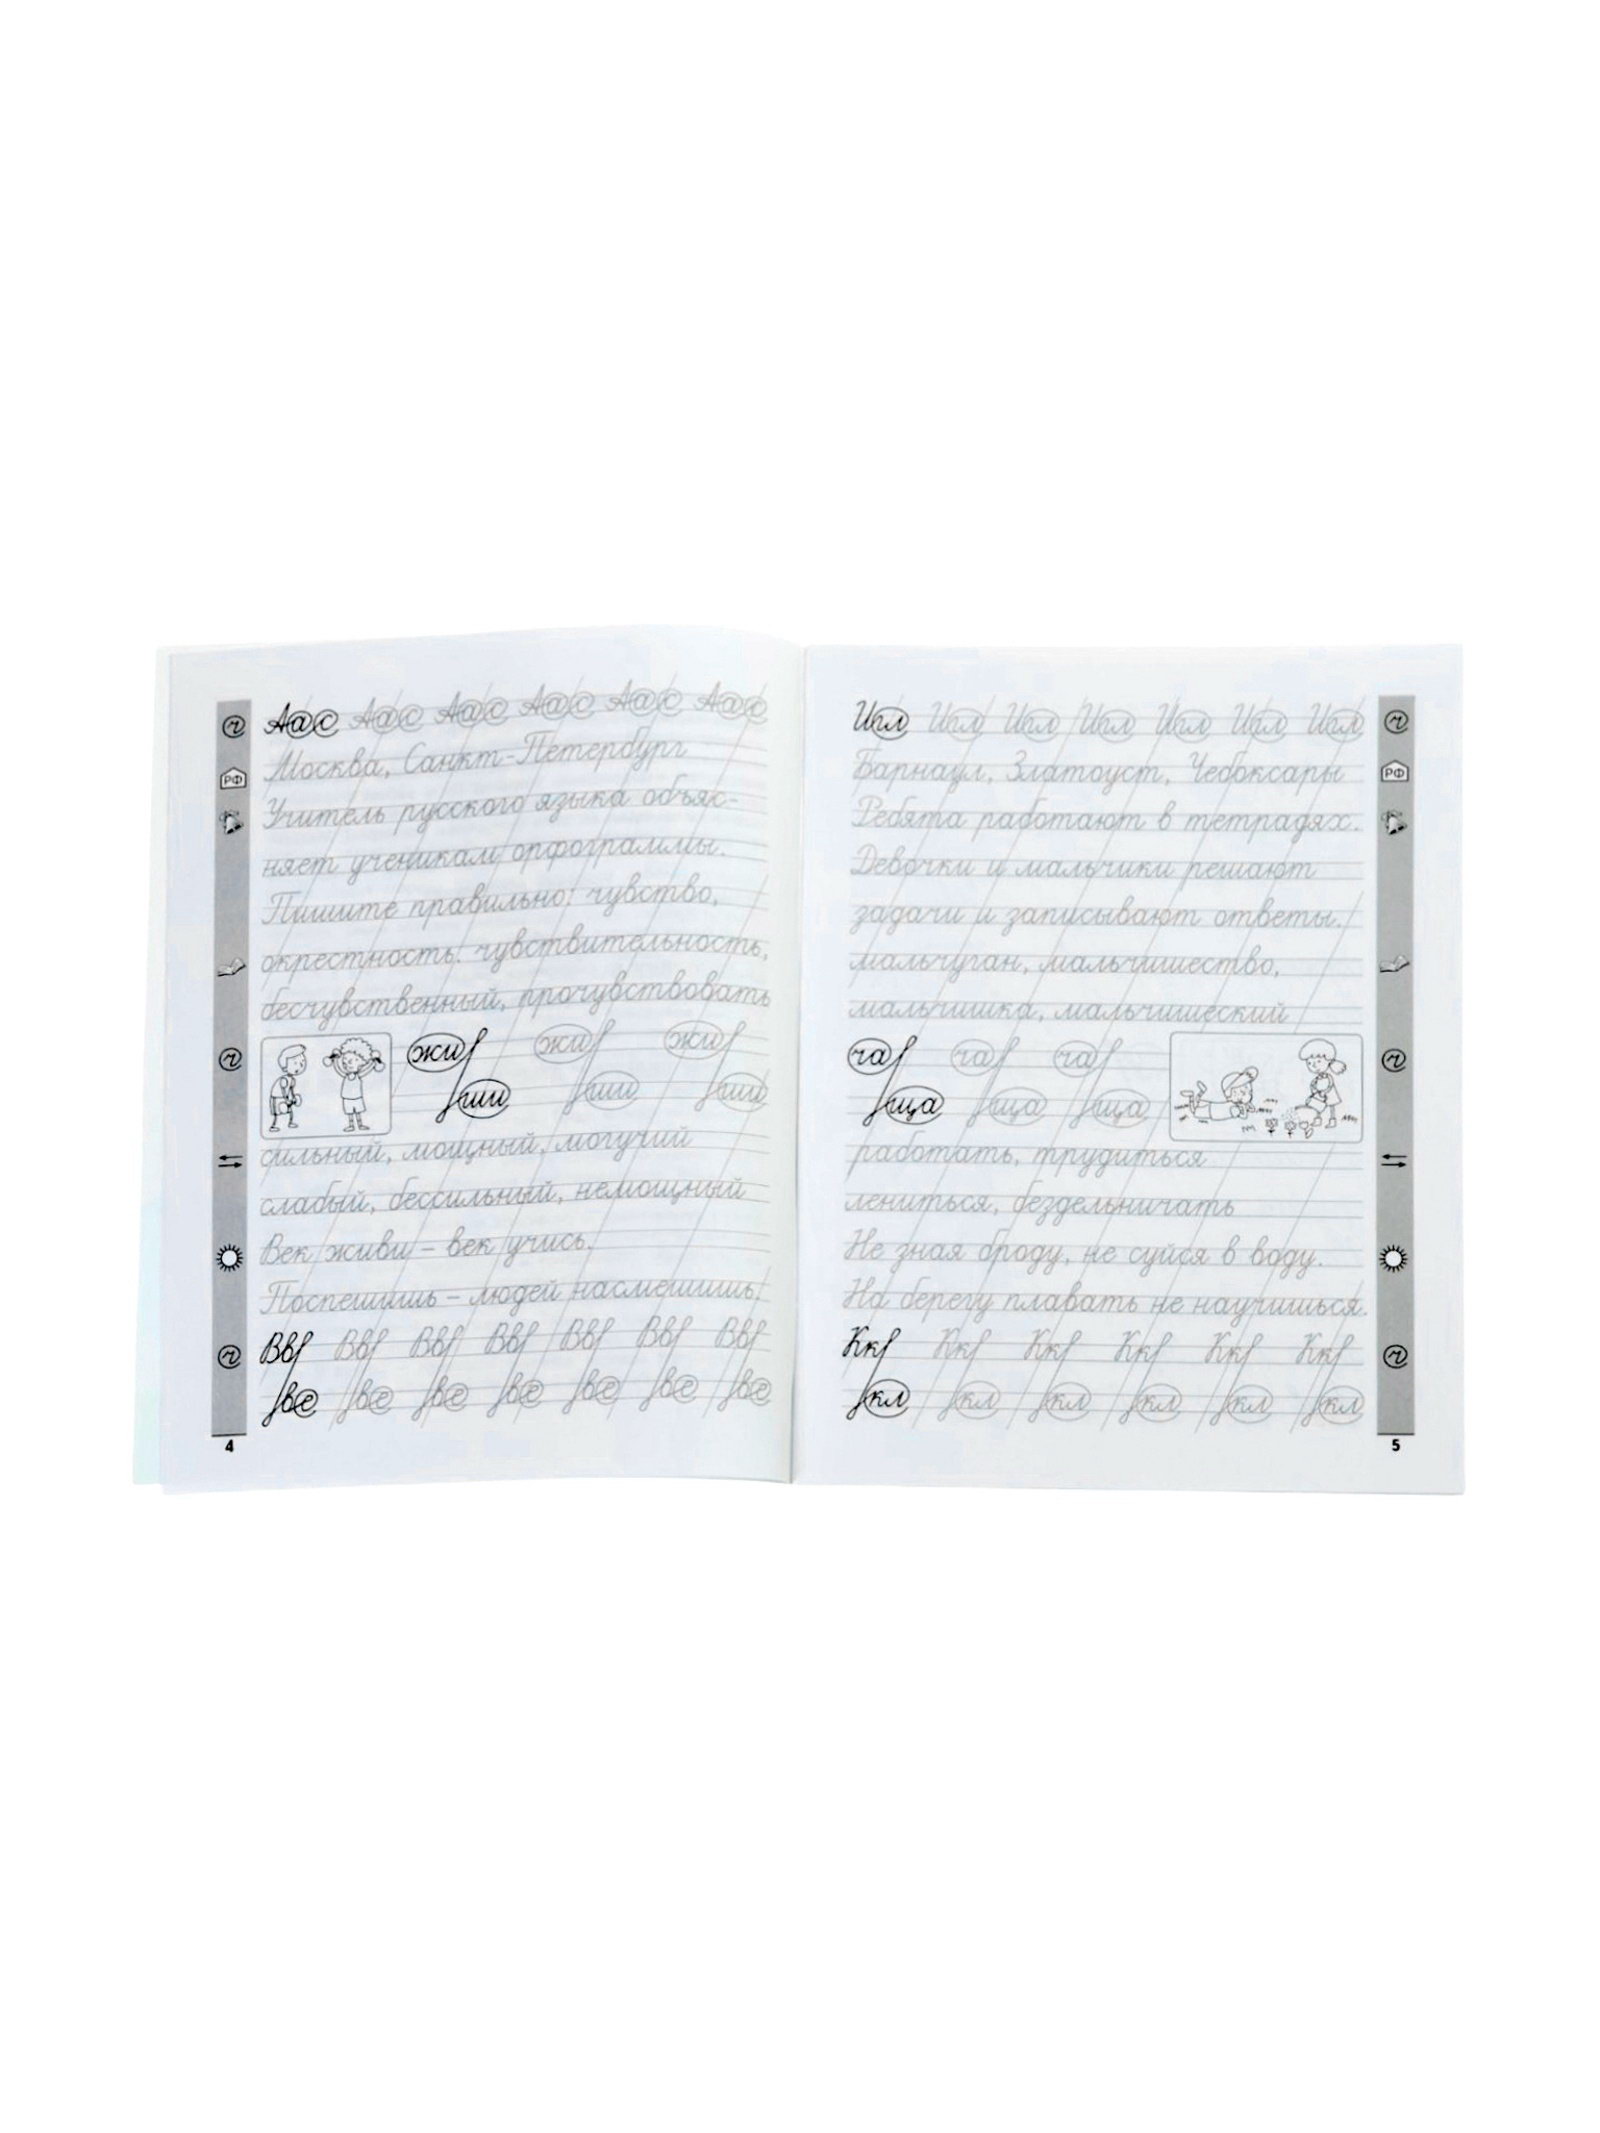 Аас Аас Аас Аас Аас Аас
Москва, Санкт-Петербург
Учитель русского языка объяс-
няет ученикам орфограммы.
Пишите правильно: чувство,
окрестность; чувствительность,
бесчувственный, прочувствовать
жи жи жи
ши ши ши
сильный, мощный, могучий
слабый, бессильный, немощный
Век живи – век учись.
Поспешишь – людей насмешишь.
Вв Вв Вв Вв Вв Вв Вв
ве ве ве ве ве ве ве
ч
РФ
ч
ч
4
Игл Игл Игл Игл Игл Игл Игл
Барнаул, Златоуст, Чебоксары
Ребята работают в тетрадях.
Девочки и мальчики решают
задачи и записывают ответы.
мальчуган, мальчишество,
мальчишка, мальчишеский
ча ча ча
ща ща ща
работать, трудиться
лениться, бездельничать
Не зная броду, не суйся в воду.
На берегу плавать не научишься.
Кк Кк Кк Кк Кк Кк
кл кл кл кл кл кл
ч
РФ
ч
ч
5